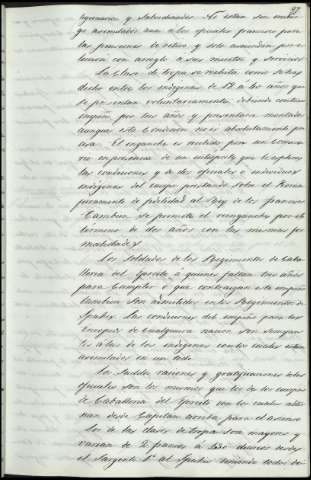 97
legionarios y Subordinados. No estan sin embar
go asimilados a los oficiales franceses para
las pensiones de retiro y solo ascienden por e
leccion con arreglo a sus meritos y servicios
La Clase de tropa se recluta como se ha
dicho entre los indigenas de 18 a los años que
se presentan voluntariamente debiendo contraer
empeño por tres años y presentarse montados
aunque esta Condicion no es absolutamente pre
cisa. El enganche es recibido por un Comisa
rio en presencia de un interprete que le esplica
las condiciones y de dos oficiales o individuos
indigenas del cuerpo prestando sobre el Koran
juramento de fidelidad al Rey de los franceses
Tambien se permite el reenganche por el
termino de dos años con las mismas for
malidades
Los Soldados de los Regimientos de Caba
lleria del Ejercito a quienes faltan tres años
para Cumplir o que contraigan este empeño
tambien son admitidos en los Regimientos de
Spahis. Las condiciones del empeño para los
Europeos de Cualquiera nacion son semejan
tes a las de los indigenas con los cuales estan
asimilados en un todo.
La Sueldos raciones y gratificaciones de los
oficiales son las mismas que los de los cuerpos
de Caballeria del Ejercito con los cuales alter
nan desde Capitan arriba para el ascenso
los de las clases de tropa son mayores y
varian de 2 francos a diarios desde
el Sargento 1º al Spahi teniendo todos de